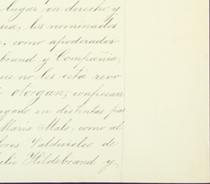 lugar en derecho y
los nominados
como apoderados
brand y Compañia,
que no les esta revo
otorgan; confiesan
gado en distintas par
Mario Malo, como al
Valdivieso de
Hildebrand y,